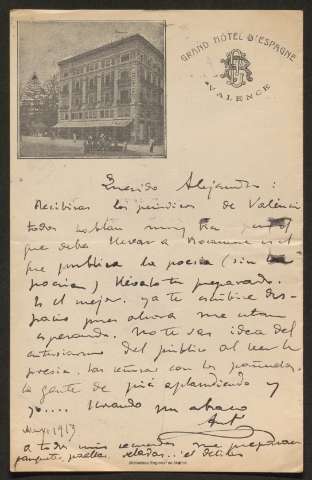 GRAND HÔTEL D'ESPAGNE
VALENCE
Querido Alejandro:
Recibirás los periódicos de València
todos hablan muy
que debes llevar a es el
que publica la poesía (sin
) llévalo tu preparado.
Es el mejor. ya te escribiré des-
pacio pues ahora me estan
esperando. No te das idea del
entusiasmo del público al leer la
poesia. las señoras con los pañuelos,
la gente de pié aplaudiendo y
yo.... llorando un abrazo
Ant
Mayo, 1913
a todos mis recuerdos me preparan
banquetes, paellas, veladas... el delirio